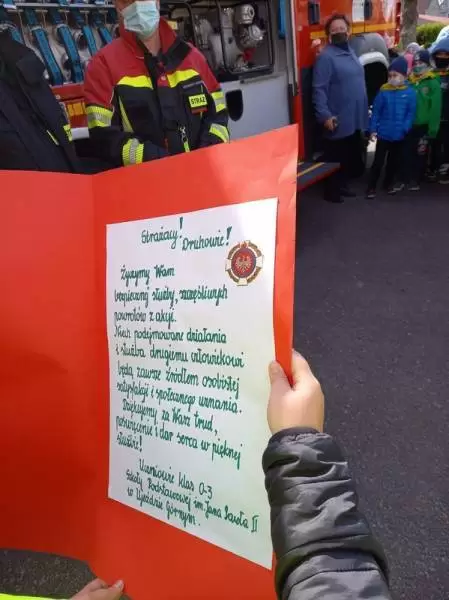 STRAŻ
Strażacy!
Druhowie!
Życzymy Wam
bezpiecznej służby, szczęśliwych
powrotów z akcji.
Niech podejmowane działania
i służba drugiemu człowiekowi
będą zawsze źródłem osobistej
satysfakcji i społecznego uznania.
Dziękujemy za Wasz trud,
poświęcenie i dar serca w pięknej
służbie!
Uczniowie klas 0-3
Szkoły Podstawowej im. Jana Pawła II
w Ujeździe Górnym.